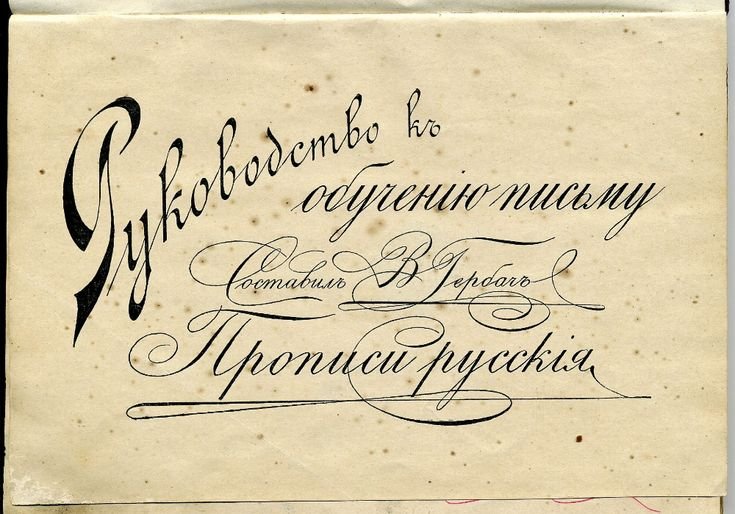 Руководство къ
обученію письму
Составилъ В Гербачъ
Прописи русскія